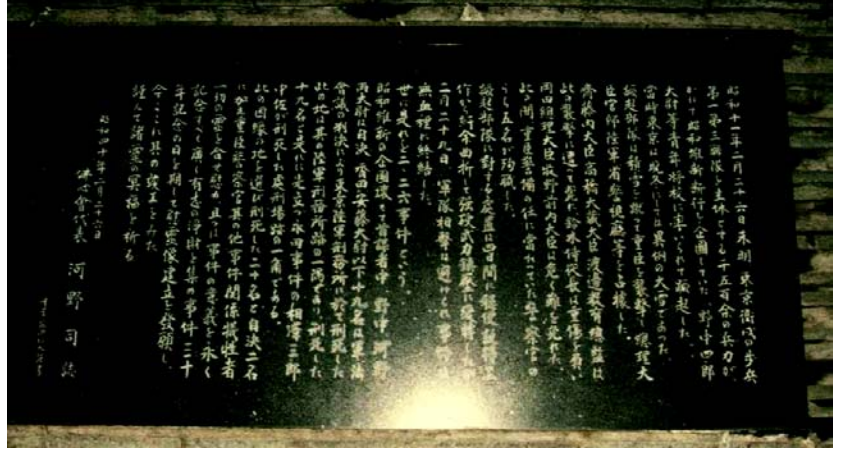 昭和十一年二月二十六日未明、東京衛戍の歩兵
第一第三聯隊を主体とする千五百余の兵力が、
かねて昭和維新断行を企図していた、野中四郎
大尉等青年将校に率いられて蹶起した。
当時東京は晩冬にしては異例の大雪であった。
蹶起部隊は積雪を蹴って重臣を襲撃し総理大
臣官邸陸軍省警視庁等を占拠した。
齋藤内大臣高橋大蔵大臣渡邊教育総監は
此の襲撃に遭って斃れ鈴木侍従長は重傷を負い
岡田総理大臣牧野前内大臣は危く難を免れた。
此の間、重臣警備の任に当っていた警察官の
うち五名が殉職した。
蹶起部隊に対する処置は四日間に穏便説得工
作から紆余曲折して強硬武力鎮圧に変転したが
二月二十九日、軍隊相撃は避けられ事件は
無血裡に終結した。
世に是れを二・二六事件という。
昭和維新の企図壊えて首謀者中、野中、河野
両大尉は自決、香田、安藤大尉以下十九名は軍法
会議の判決により東京陸軍刑務所に於て刑死した。
此の地は其の陸軍刑務所跡の一隅であり、刑死した
十九名と是れに先立つ永田事件の相澤三郎
中佐が刑死した処刑場跡の一角である。
此の因縁の地を選び刑死した二十名と自決二名
に加え重臣警察官其の他事件関係犠牲者
一切の霊を合せ慰め、且つは事件の意義を永く
記念すべく広く有志の浄財を集め事件三十
年記念の日を期して慰霊像建立を発願し、
今ここに其の竣工をみた。
謹んで諸霊の冥福を祈る
昭和四十年二月二十六日
佛心會代表 河野司 誌